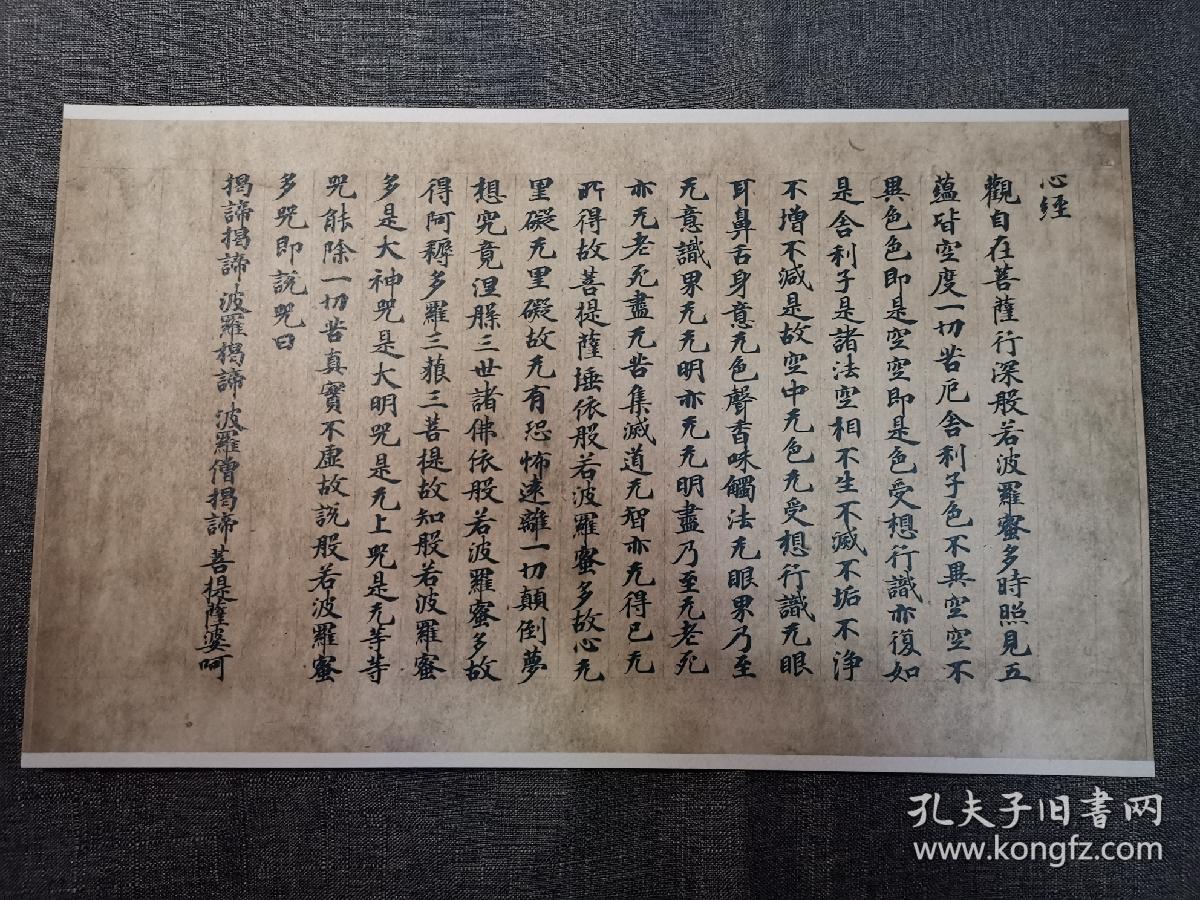 心経
觀自在菩薩行深般若波羅蜜多時照見五
蘊皆空度一切苦厄舍利子色不異空空不
異色色即是空空即是色受想行識亦復如
是舍利子是諸法空相不生不滅不垢不浄
不增不減是故空中无色无受想行識无眼
耳鼻舌身意无色聲香味觸法无眼界乃至
无意識界无无明亦无无明盡乃至无老死
亦无老死盡无苦集滅道无智亦无得已无
所得故菩提薩埵依般若波羅蜜多故心无
罣礙无罣礙故无有恐怖遠離一切顛倒夢
想究竟涅槃三世諸佛依般若波羅蜜多故
得阿耨多羅三藐三菩提故知般若波羅蜜
多是大神咒是大明咒是无上咒是无等等
咒能除一切苦真實不虛故説般若波羅蜜
多咒即説咒曰
揭諦揭諦波羅揭諦波羅僧揭諦菩提薩婆呵
孔夫子旧书网
www.kongfz.com